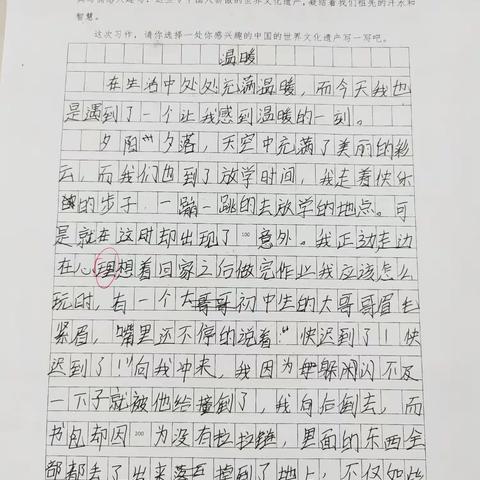 智慧。
这次习作，请你选择一处你感兴趣的中国的世界文化遗产写一写吧。
温暖
在生活中处处充满温暖，而今天我也
是遇到了一个让我感到温暖的一刻。
夕阳夕落，天空中充满了美丽的彩
云，而我们也到了放学时间，我走着快乐
的步子，一蹦一跳的去放学的地点。可
是就在这时却出现了100意外。我正边走边
在心理想着回家之后做完作业我应该怎么
玩时，有一个大哥哥初中生的大哥哥眉毛
紧眉，嘴里还不停的说着："快迟到了！快
迟到了！"向我冲来，我因为躲闪不及
一下子就被他给撞倒了，我向后倒去，而
书包却因200为没有拉拉链，里面的东西全
部都丢了出来落掉到了地上，不仅如此